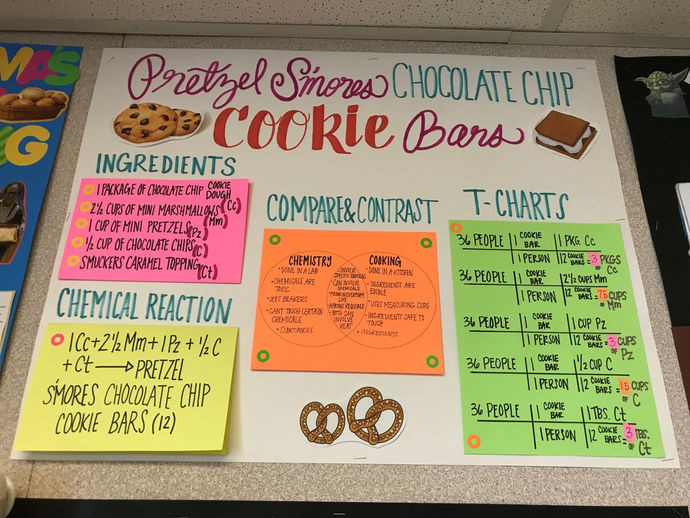 MA'S
G
Pretzel S'mores CHOCOLATE CHIP
COOKIE Bars
INGREDIENTS
1 PACKAGE OF CHOCOLATE CHIP COOKIE DOUGH (Cc)
2½ CUPS OF MINI MARSHMALLOWS (Mm)
1 CUP OF MINI PRETZELS (Pz)
½ CUP OF CHOCOLATE CHIPS (C)
SMUCKERS CARAMEL TOPPING (Ct)
CHEMICAL REACTION
1 Cc + 2½ Mm + 1 Pz + ½ C
+ Ct → PRETZEL
S'MORES CHOCOLATE CHIP
COOKIE BARS (12)
COMPARE & CONTRAST
CHEMISTRY
• DONE IN A LAB
• CHEMICALS ARE
TOXIC
• USES BEAKERS
• CAN'T TOUCH CERTAIN
CHEMICALS
• SUBSTANCES
INVOLVE
SPECIFIC
CAN INVOLVE
CHEMICALS
BOTH CAN
INVOLVE
HEAT
COOKING
• DONE IN A KITCHEN
• INGREDIENTS ARE
EDIBLE
• USES MEASURING CUPS
• INGREDIENTS SAFE TO
TOUCH
• INGREDIENTS
T-CHARTS
36 PEOPLE 1 COOKIE BAR 1 PKG. Cc
1 PERSON 12 COOKIE BARS = 3 PKGS OF Cc
36 PEOPLE 1 COOKIE BAR 2½ CUPS Mm
1 PERSON 12 COOKIE BARS = 7.5 CUPS OF Mm
36 PEOPLE 1 COOKIE BAR 1 CUP Pz
1 PERSON 12 COOKIE BARS = 3 CUPS OF Pz
36 PEOPLE 1 COOKIE BAR ½ CUP C
1 PERSON 12 COOKIE BARS = 1.5 CUPS OF C
36 PEOPLE 1 COOKIE BAR 1 TBS. Ct
1 PERSON 12 COOKIE BARS = 3 TBS. OF Ct